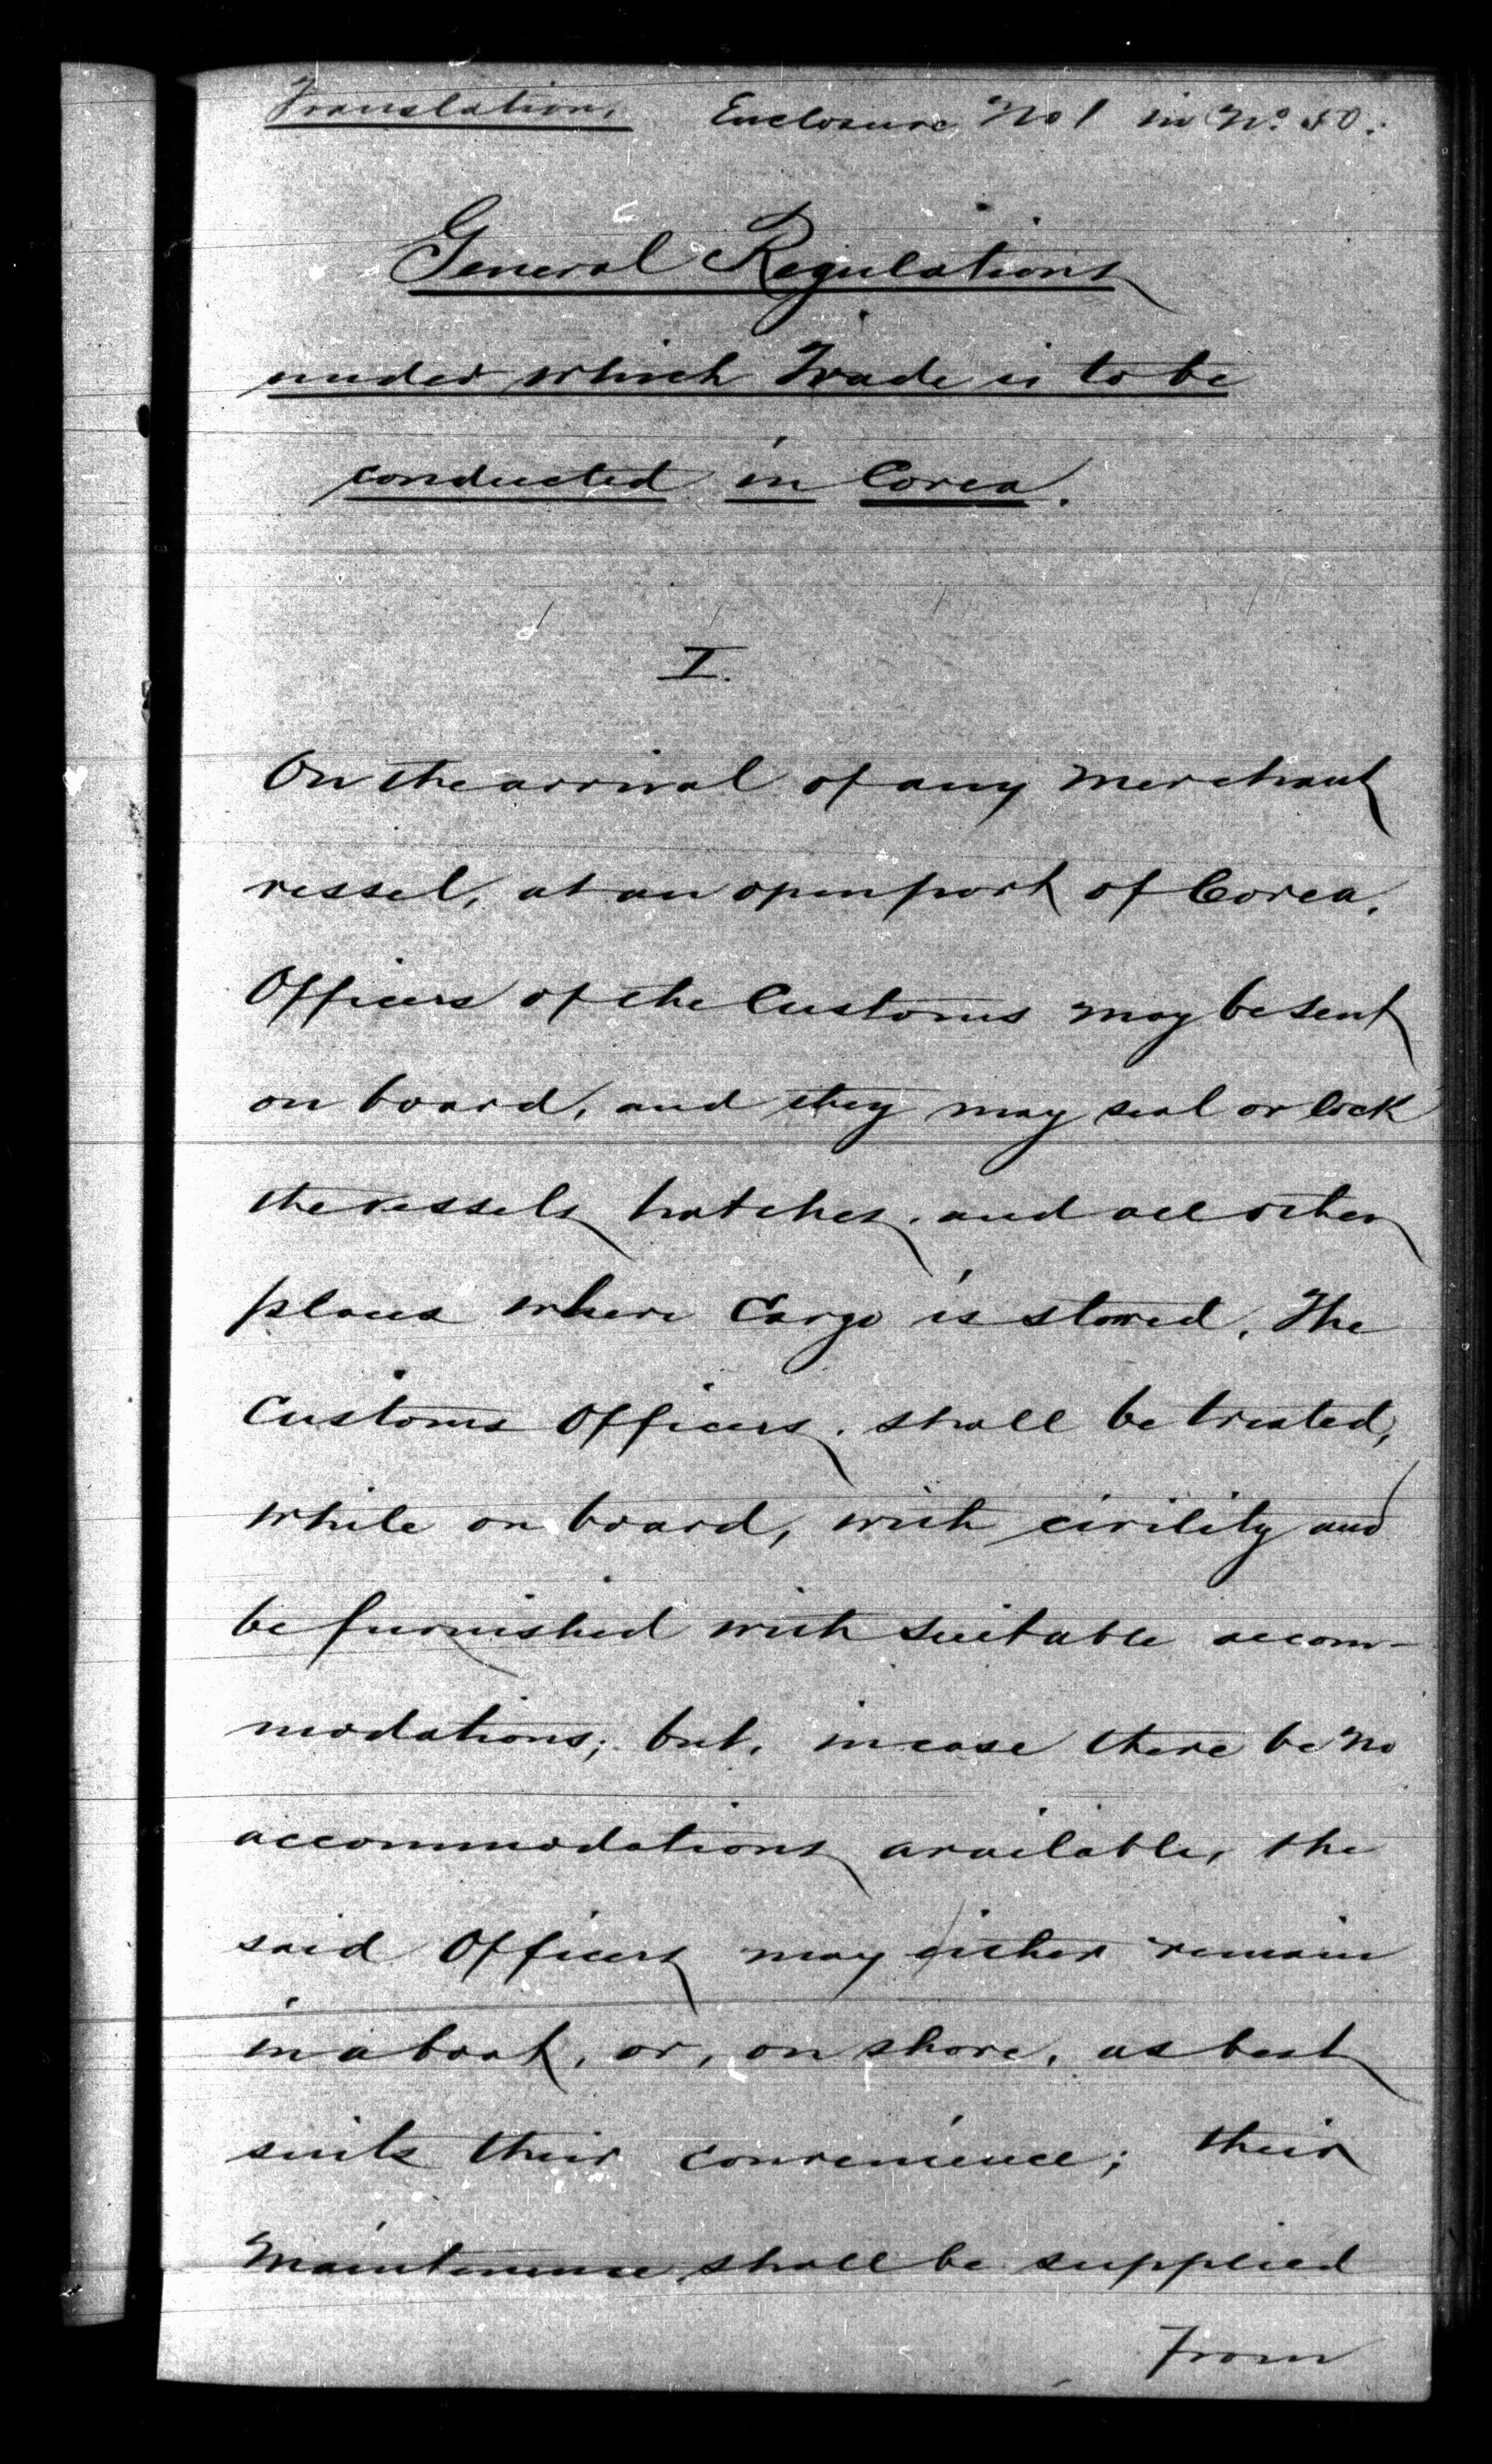 Translation. Enclosure No 1 in No. 50.
General Regulations
under which Trade is to be
conducted in Corea.
I.
On the arrival of any Merchant
vessel, at an open port of Corea,
Officers of the Customs may be sent
on board, and they may seal or lock
the vessels hatches, and all other
places where Cargo is stowed. The
Customs Officers, shall be treated,
while on board, with civility and
be furnished with suitable accom-
modations; but, in case there be no
accommodations available, the
said Officers may either remain
in a boat, or, on shore, as best
suits their convenience; their
Maintenance shall be supplied
From